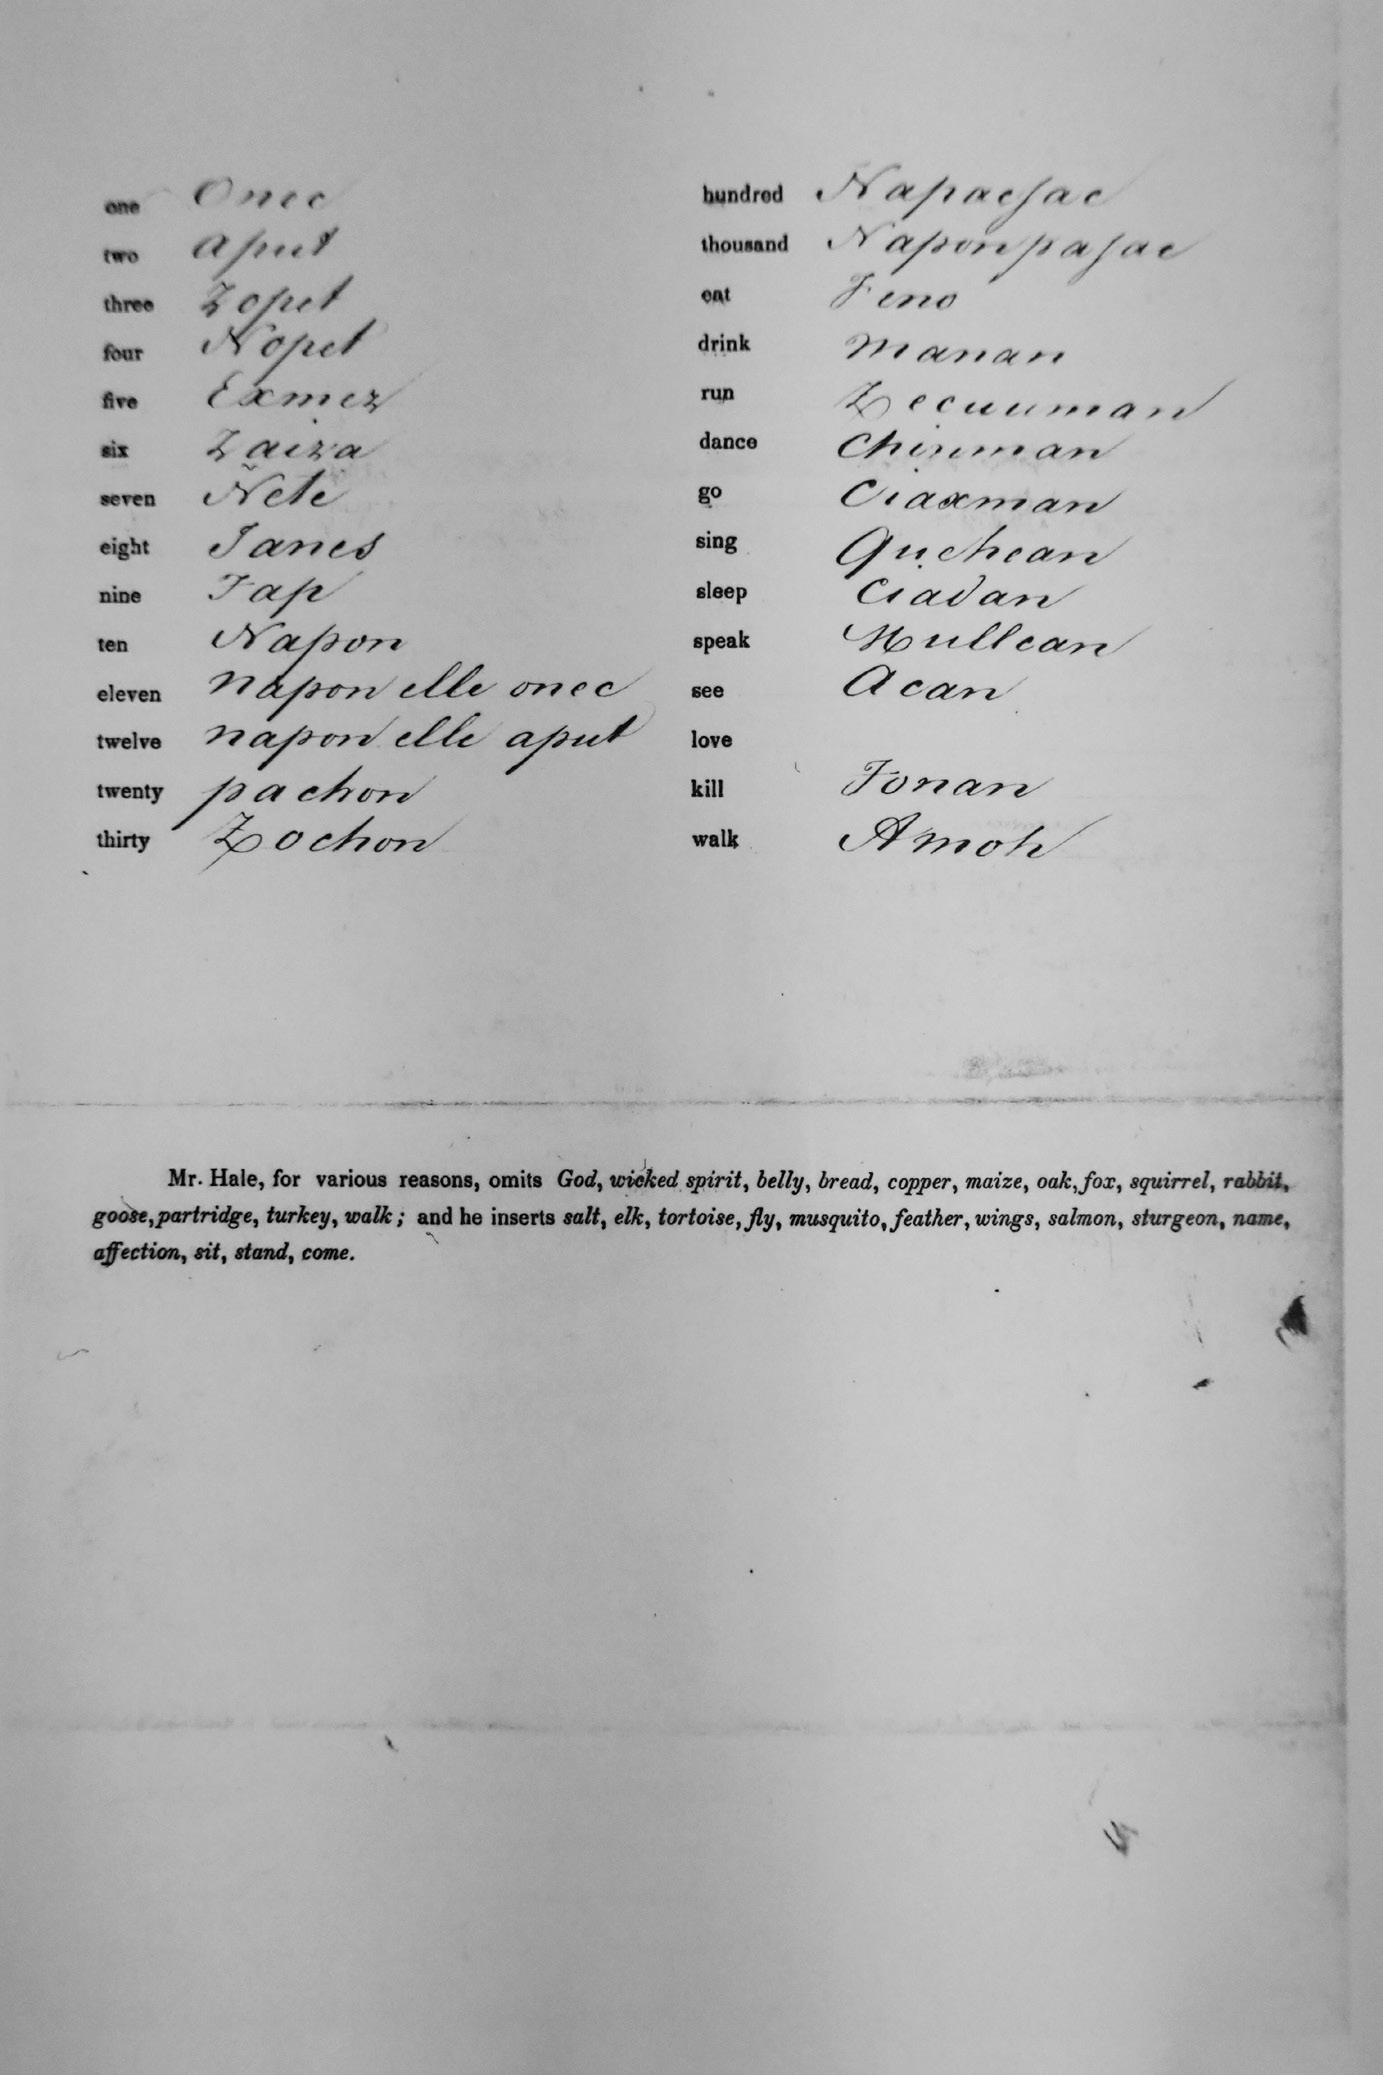 one Onec
two aput
three Zopet
four Nopet
five Exmez
six Zaiza
seven Ñete
eight Janes
nine Fap
ten Napon
eleven napon elle onec
twelve napon elle aput
twenty pachon
thirty Zochon
hundred Napaesac
thousand Naponpasac
eat Feno
drink manan
run Zecuuman
dance Chinman
go Ciaxman
sing Quchean
sleep Ciadan
speak Mullean
see Acan
love
kill Fonan
walk Amoh
Mr. Hale, for various reasons, omits God, wicked spirit, belly, bread, copper, maize, oak, fox, squirrel, rabbit,
goose, partridge, turkey, walk; and he inserts salt, elk, tortoise, fly, musquito, feather, wings, salmon, sturgeon, name,
affection, sit, stand, come.